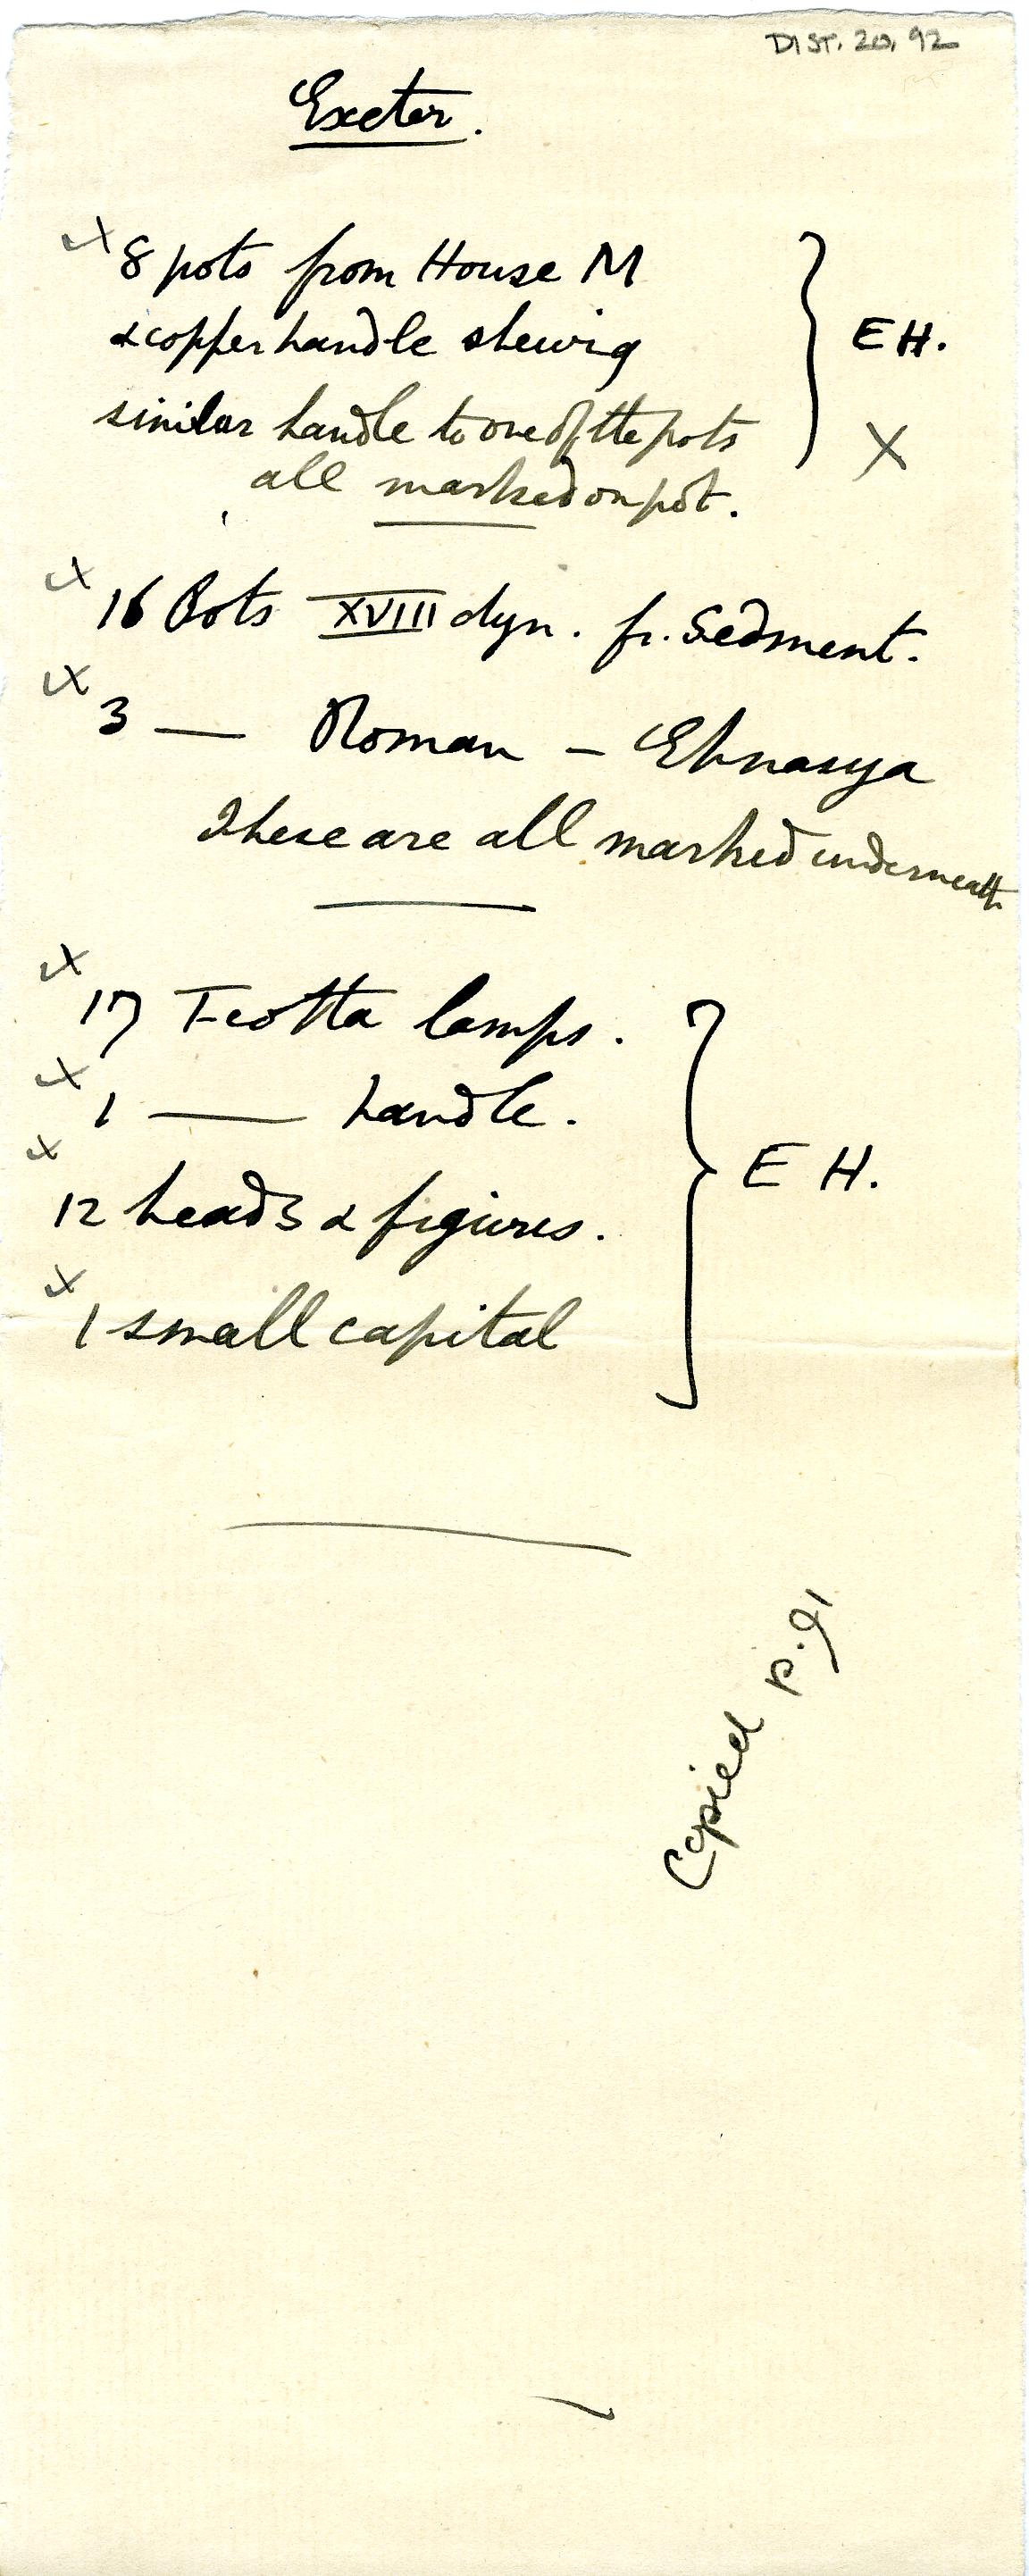 DIST. 20. 92
Exeter.
8 pots from House M
& copper handle shewing
similar handle to one of the pots
all marked on pot.
EH.
X
16 Pots XVIII dyn. fr. Sedment.
3 — Roman — Ehnasya
These are all marked underneath
17 T-cotta lamps.
1 — handle.
12 heads & figures.
1 small capital
E H.
Copied p.91